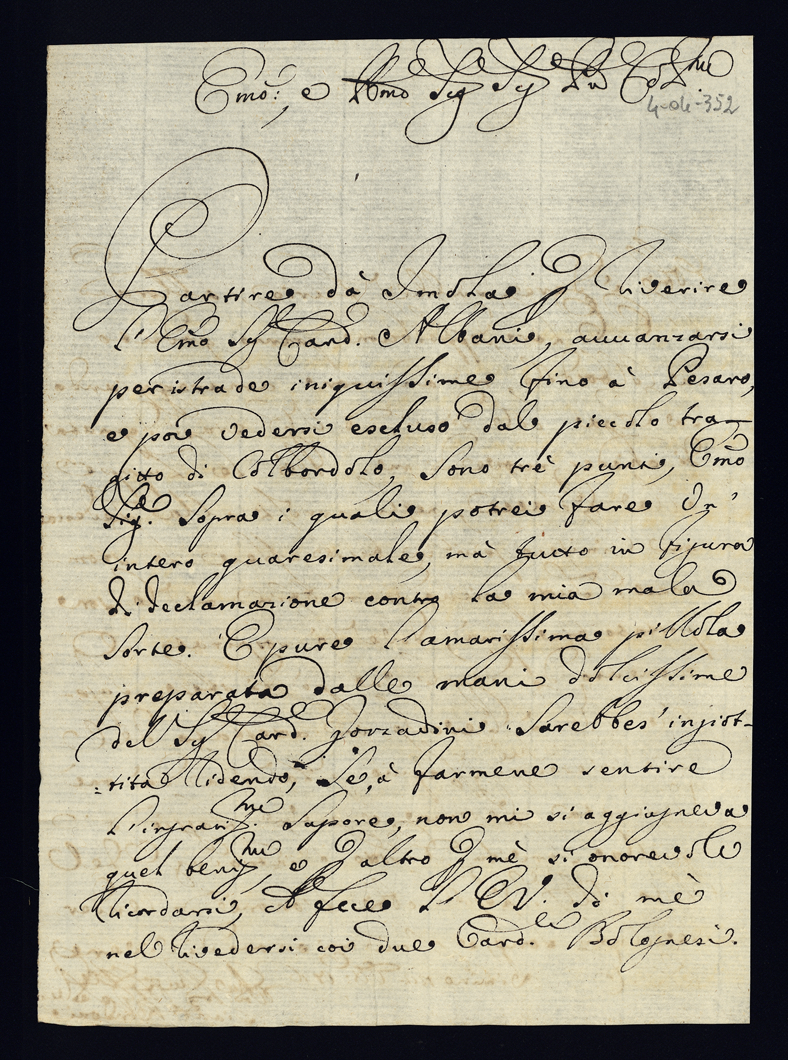 Emo:, e Rmo Sig Sig Pn Colmo
4-04-352
Partire dà Imola p riverire
l'Emo Sig Card. Albani, auuanzarsi
per istrade iniquissime fino à Pesaro,
e poi vedersi escluso dal piccolo tra-
gitto di Colbordolo, sono trè punti, Emo
Sig.e sopra i quali potrei fare vn'
intero quaresimale, mà tutto in figura
di declamazione contra la mia mala
sorte. E pure l'amarissima pillola
preparata dalle mani dolcissime
del Sig Card. Gozzadini sarebbesi inghiot-
:tita ridendo, se, à farmene sentire
l'ingratiss.mo sapore, non mi si aggiugneua
quel benig.mo, e p altro p mè si onoreuole
ricordarsi, che fece V. Em. di mè
nel riuedersi coi due Card.li Bolognesi.